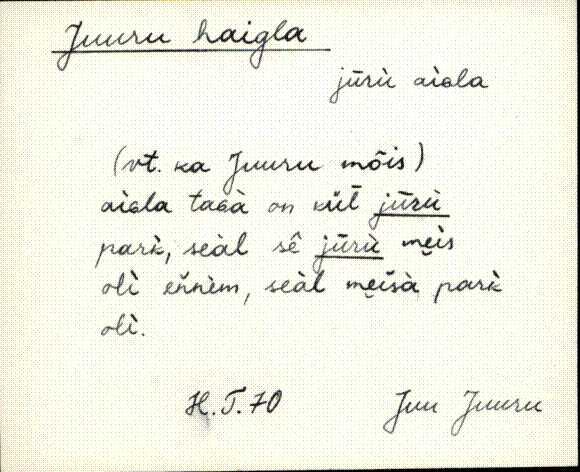 Juuru haigla
jūrù aìɢla
(vt. ka Juuru mõis)
aìɢla taɢà on kül̄ jūrù
park̀, seàl sê jūrù me̮ìs
olì eǹnèm, seàl me̮ìsà park̀
olì.
H.T.70 Juu Juuru